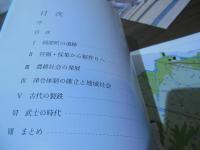 目次
序
目次
Ⅰ 国部町の遺跡
Ⅱ 狩猟・採集から稲作りへ
Ⅲ 農耕社会の発展
Ⅳ 律令体制の確立と地域社会
Ⅴ 古代の製鉄
Ⅵ 武士の時代
Ⅶ まとめ